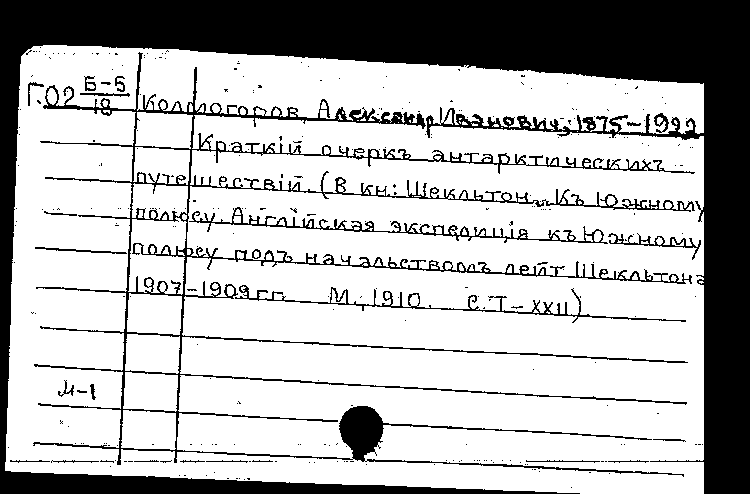 Г.02 Б-5/18 Колмогоров, Александр Иванович, 1875-1922
Краткій очеркъ антарктическихъ
путешествій. (В кн: Шекльтон. Къ Южному
полюсу. Англійская экспедиція къ Южному
полюсу подъ начальствомъ лейт Шекльтона
1907-1909 гг. М., 1910. С. I-XXII)
М-1